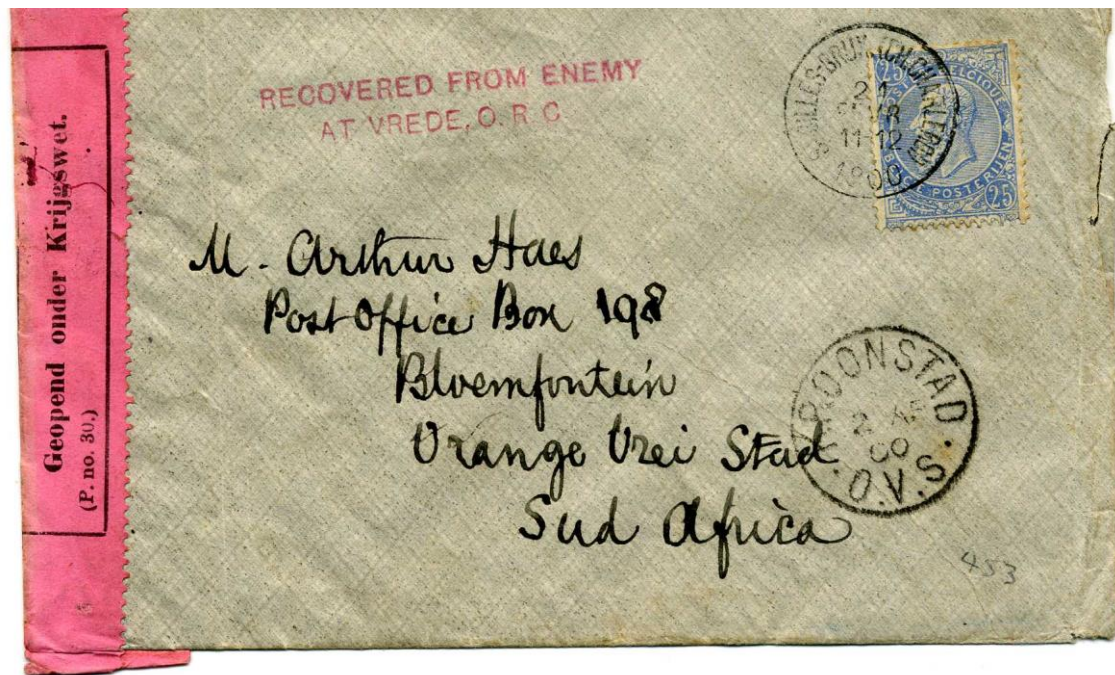 Geopend onder Krijgswet.
(P. no. 30.)
RECOVERED FROM ENEMY
AT VREDE, O. R. C
S. GILLES-BRUX. (CH. CHARLEROI)
21
11-12
1900
25
BELGIQUE
BELGIE POSTERIJEN
25
M. Arthur Haes
Post Office Box 198
Bloemfontein
Orange Vrei Stad
Sud Africa
KROONSTAD
2 AP
00
O.V.S.
453